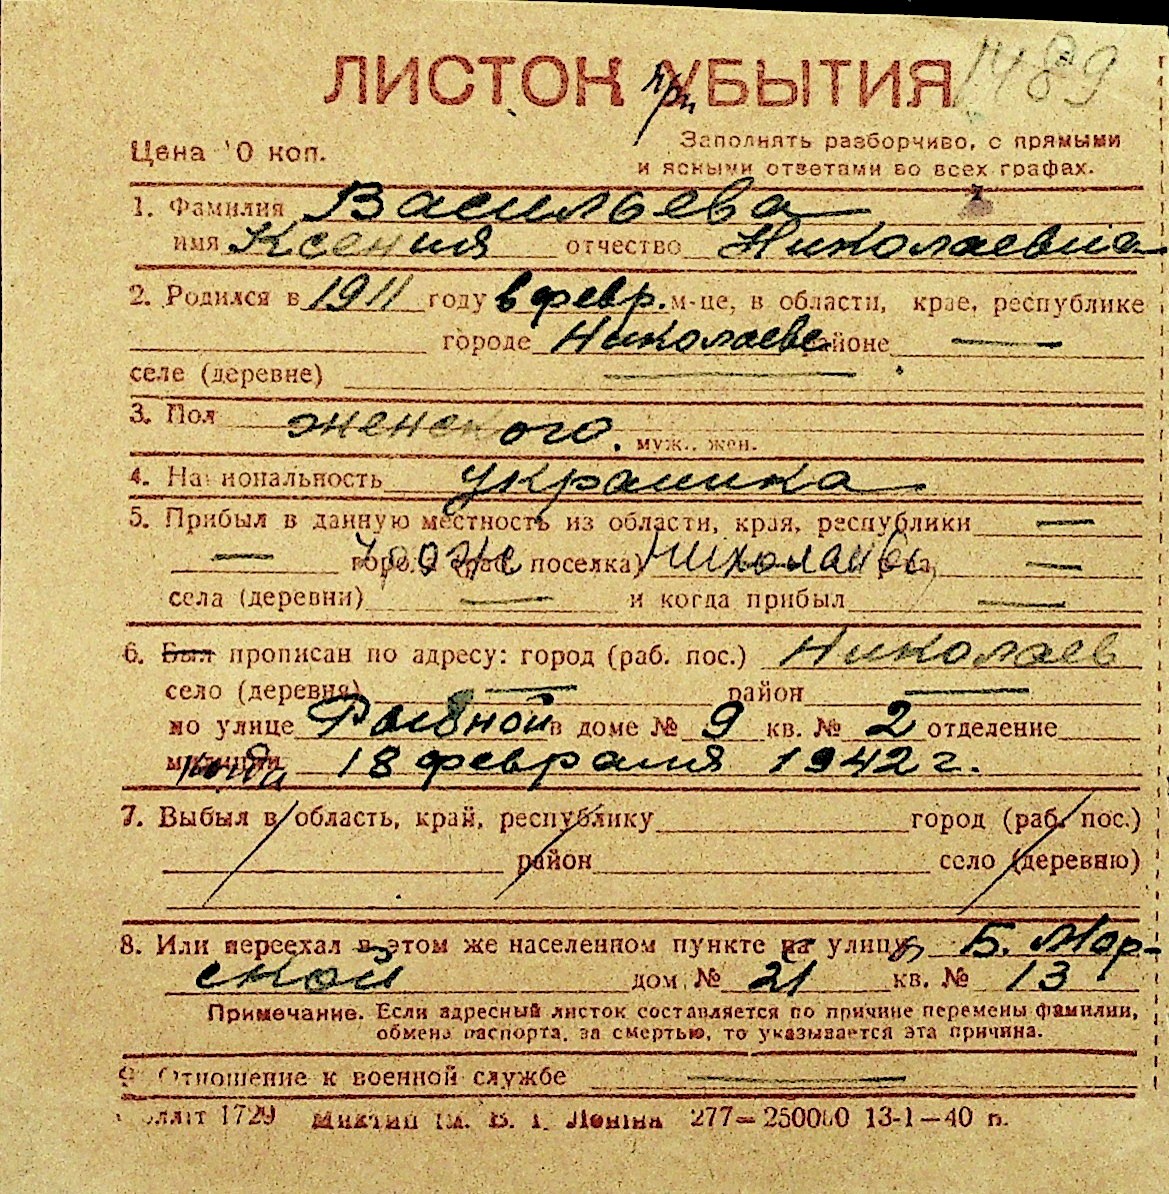 1489
ЛИСТОК при УБЫТИЯ
Цена 10 коп.
Заполнять разборчиво, с прямыми
и ясными ответами во всех графах.
1. Фамилия Васильева
имя Ксения отчество Николаевна
2. Родился в 1911 году в февр. м-це, в области, крае, республике
городе Николаеве районе —
селе (деревне) —
3. Пол женского. муж., жен.
4. Национальность украинка.
5. Прибыл в данную местность из области, края, республики —
— города (раб. поселка) Николаева —
села (деревни) — и когда прибыл —
6. Был прописан по адресу: город (раб. пос.) Николаев
село (деревня) — район —
по улице Рыбной в доме № 9 кв. № 2 отделение
милиции 18 февраля 1942 г.
7. Выбыл в область, край, республику город (раб. пос.)
район село (деревню)
8. Или переехал в этом же населенном пункте на улицу Б. Мор-
ской дом № 21 кв. № 13
Примечание. Если адресный листок составляется по причине перемены фамилии,
обмена паспорта, за смертью, то указывается эта причина.
9. Отношение к военной службе —
1729 им. В. И. Ленина 277—250000 13-I—40 г.